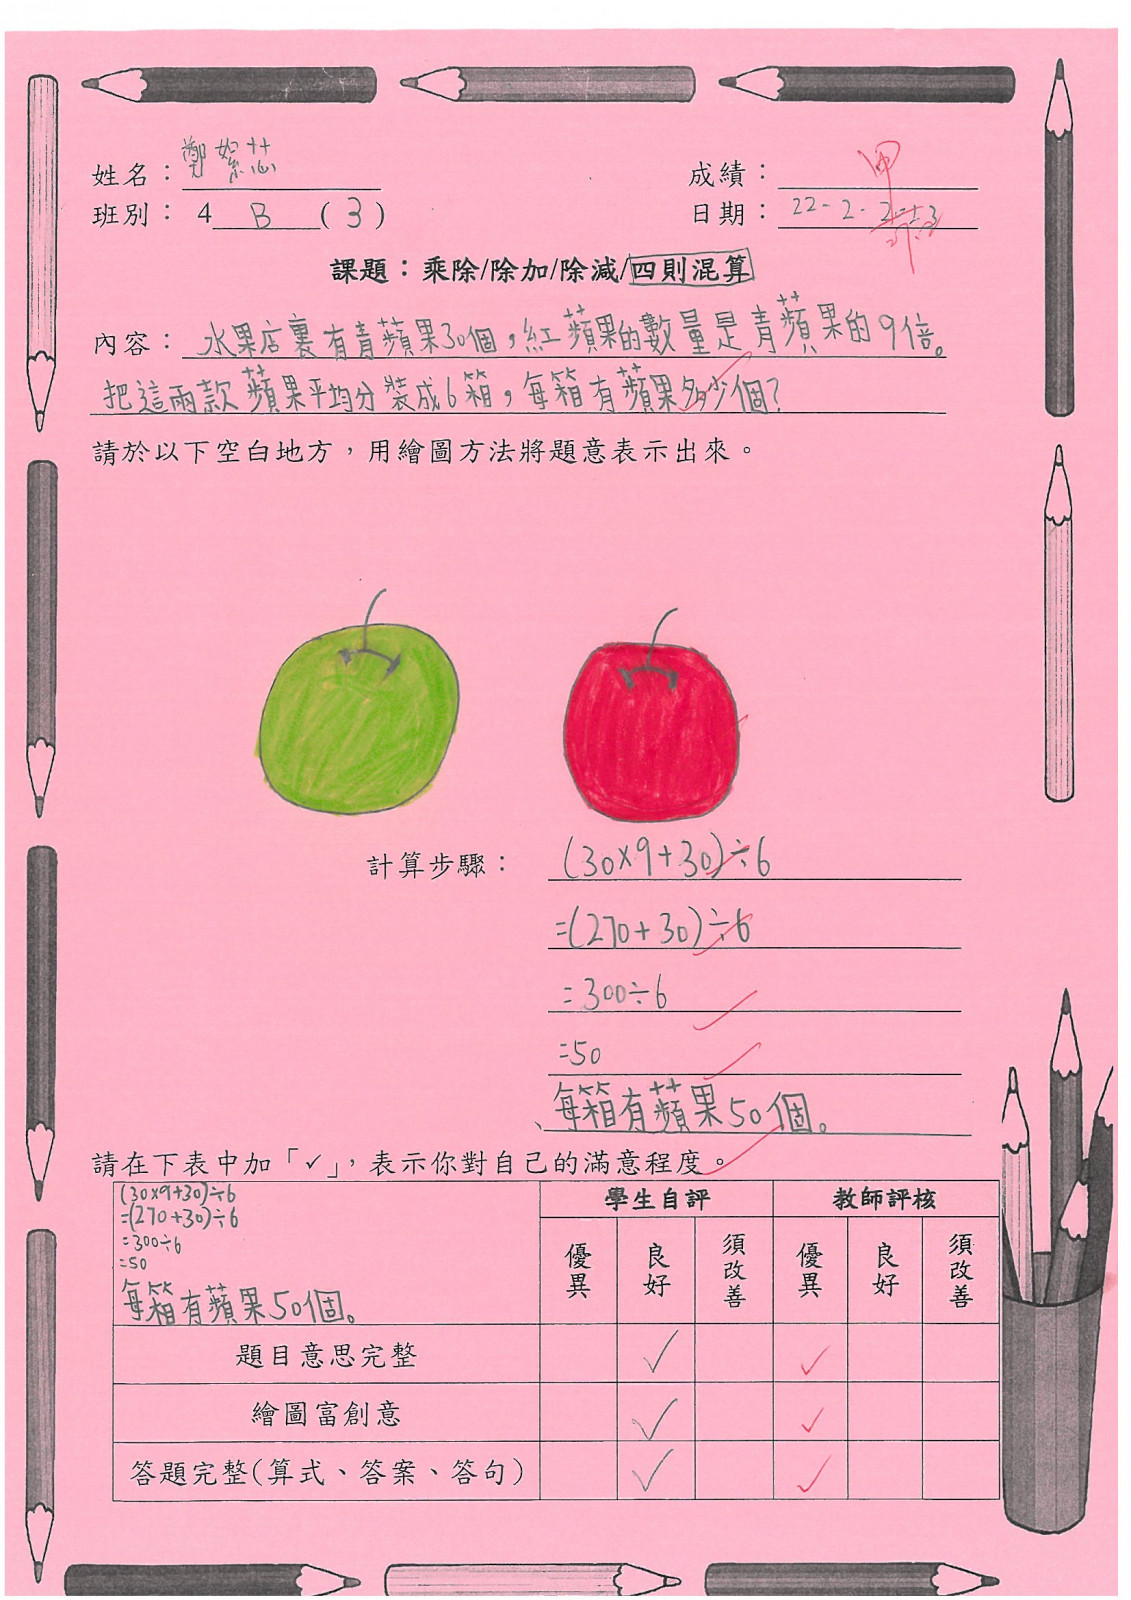 姓名：鄭絮芯
成績：甲
班別： 4 B (3)
日期：22-2-
課題：乘除/除加/除減/四則混算
內容：水果店裏有青蘋果30個，紅蘋果的數量是青蘋果的9倍。
把這兩款蘋果平均分裝成6箱，每箱有蘋果多少個？
請於以下空白地方，用繪圖方法將題意表示出來。
計算步驟：(30×9+30)÷6
=(270+30)÷6
=300÷6
=50
每箱有蘋果50個。
請在下表中加「✓」，表示你對自己的滿意程度。
(30×9+30)÷6
=(270+30)÷6
=300÷6
=50
每箱有蘋果50個。
學生自評 教師評核
優異 良好 須改善 優異 良好 須改善
題目意思完整 ✓ ✓
繪圖富創意 ✓ ✓
答題完整(算式、答案、答句) ✓ ✓